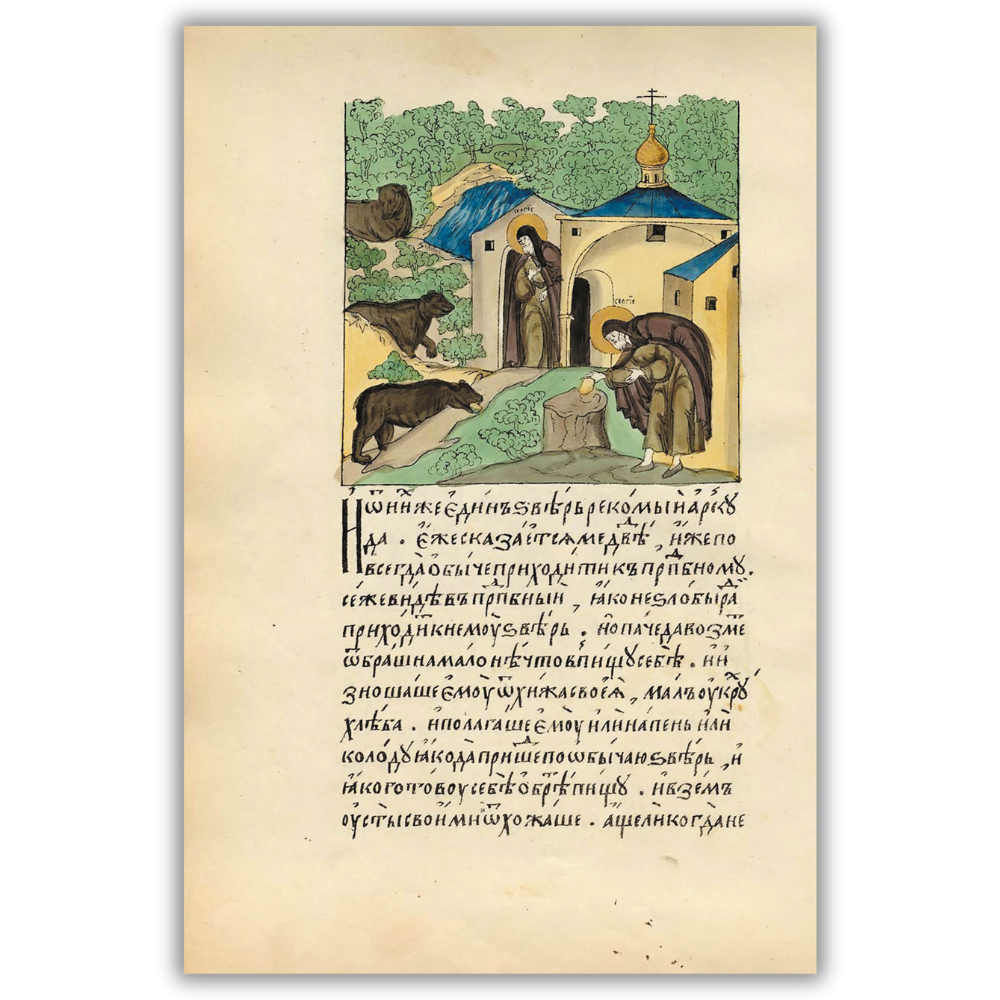 сергіе
сергіе
И ѿ ни́хже є҆ди́нъ ѕвѣ́рь реко́мый а҆рку́
да . є҆́же сказа́етсѧ медвѣ́дь , и҆́же по
всегда̀ ѻ҆бы́че приходи́ти къ прпⷣбному .
се́же ви́дѣвъ прпⷣбный , ꙗ҆́ко не ѕло́бы раⷣ
прихо́диⷮ к немоу̀ ѕвѣ́рь . но̀ па́че да во́змеⷮ
ѿ бра́шна ма́ло нѣ́что в пи́щꙋ себѣ̀ . и҆ и҆
зноша́ше є҆моу̀ ѿ хи́жа своеѧ̀ , ма́лъ оу҆крꙋⷯ
хлѣ́ба . и҆ полага́ше є҆моу̀ и҆лѝ на пе́нь и҆лѝ
коло́дꙋ ꙗ҆́ко да̀ прише́ⷣ по ѻ҆бы́чаю ѕвѣ́рь , и҆
ꙗ҆́ко гото́воу себѣ̀ ѻ҆брѣ́ⷮ пи́щꙋ . и҆ взе́мъ
оу҆сты̀ свои́ми ѿхожа́ше . а҆́ще ли когда̀ не